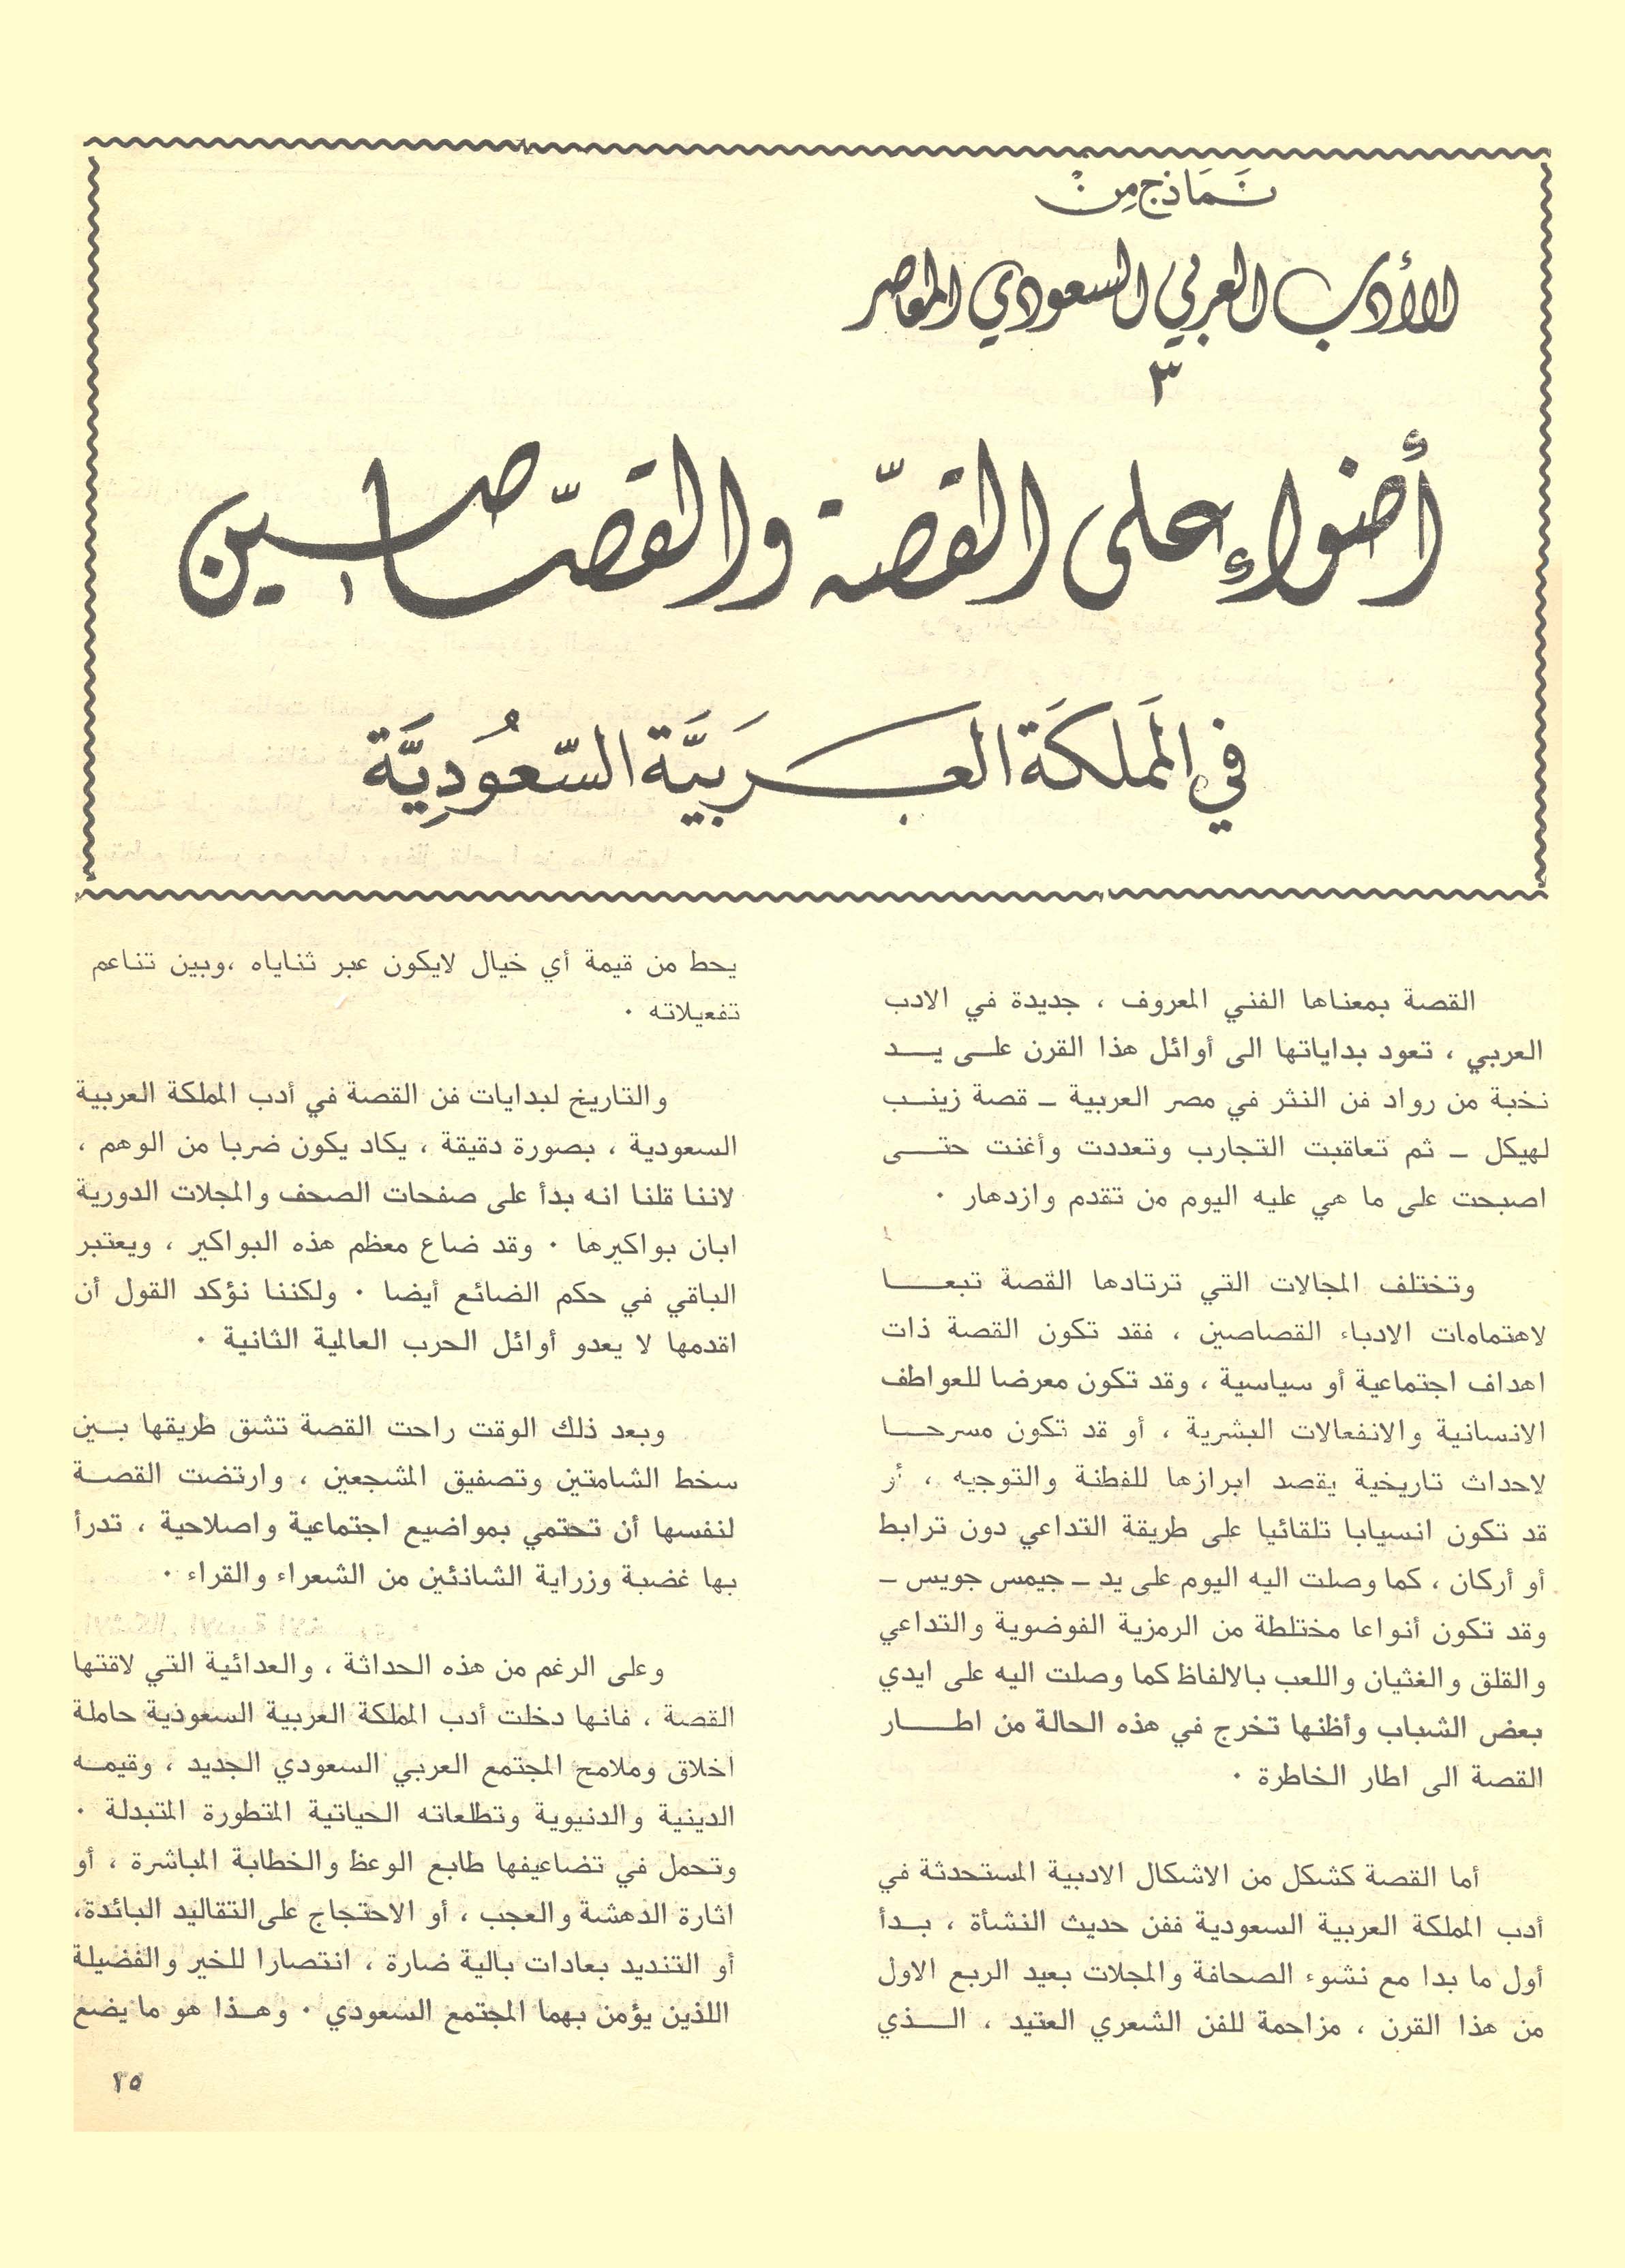 نَمَاذج مِنْ
الأدب العربي السعودي المعاصر
٣
أضواء على القصّة والقصّاصين
في المَملكَة العَرَبيَّة السّعُودِيَّة
القصة بمعناها الفني المعروف ، جديدة في الادب
العربي ، تعود بداياتها الى أوائل هذا القرن على يد
نخبة من رواد فن النثر في مصر العربية ــ قصة زينب
لهيكل ــ ثم تعاقبت التجارب وتعددت وأغنت حتى
اصبحت على ما هي عليه اليوم من تقدم وازدهار ٠
وتختلف المجالات التي ترتادها القصة تبعا
لاهتمامات الادباء القصاصين ، فقد تكون القصة ذات
اهداف اجتماعية أو سياسية ، وقد تكون معرضا للعواطف
الانسانية والانفعالات البشرية ، أو قد تكون مسرحا
لاحداث تاريخية يقصد ابرازها للفطنة والتوجيه ، أو
قد تكون انسيابا تلقائيا على طريقة التداعي دون ترابط
أو أركان ، كما وصلت اليه اليوم على يد ــ جيمس جويس ــ
وقد تكون أنواعا مختلطة من الرمزية الفوضوية والتداعي
والقلق والغثيان واللعب بالالفاظ كما وصلت اليه على ايدي
بعض الشباب وأظنها تخرج في هذه الحالة من اطار
القصة الى اطار الخاطرة ٠
أما القصة كشكل من الاشكال الادبية المستحدثة في
أدب المملكة العربية السعودية ففن حديث النشأة ، بدأ
أول ما بدا مع نشوء الصحافة والمجلات بعيد الربع الاول
من هذا القرن ، مزاحمة للفن الشعري العتيد ، الذي
يحط من قيمة أي خيال لايكون عبر ثناياه ،وبين تناعم
تفعيلاته ٠
والتاريخ لبدايات فن القصة في أدب المملكة العربية
السعودية ، بصورة دقيقة ، يكاد يكون ضربا من الوهم ،
لاننا قلنا انه بدأ على صفحات الصحف والمجلات الدورية
ابان بواكيرها ٠ وقد ضاع معظم هذه البواكير ، ويعتبر
الباقي في حكم الضائع أيضا ٠ ولكننا نؤكد القول أن
اقدمها لا يعدو أوائل الحرب العالمية الثانية ٠
وبعد ذلك الوقت راحت القصة تشق طريقها بين
سخط الشامتين وتصفيق المشجعين ، وارتضت القصة
لنفسها أن تحتمي بمواضيع اجتماعية واصلاحية ، تدرأ
بها غضبة وزراية الشانئين من الشعراء والقراء ٠
وعلى الرغم من هذه الحداثة ، والعدائية التي لاقتها
القصة ، فانها دخلت أدب المملكة العربية السعودية حاملة
اخلاق وملامح المجتمع العربي السعودي الجديد ، وقيمه
الدينية والدنيوية وتطلعاته الحياتية المتطورة المتبدلة ٠
وتحمل في تضاعيفها طابع الوعظ والخطابة المباشرة ، أو
اثارة الدهشة والعجب ، أو الاحتجاج على التقاليد البائدة،
أو التنديد بعادات بالية ضارة ، انتصارا للخير والفضيلة
اللذين يؤمن بهما المجتمع السعودي ٠ وهذا هو ما يضع
٢٥